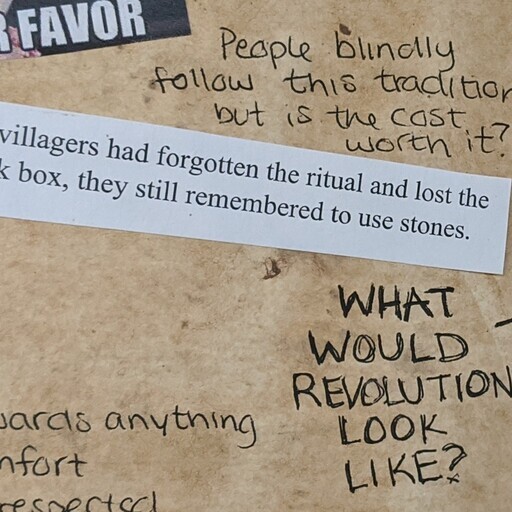 FAVOR
People blindly
follow this tradition
but is the cost
worth it?
villagers had forgotten the ritual and lost the
box, they still remembered to use stones.
WHAT
WOULD
REVOLUTION
LOOK
LIKE?
anything
respected